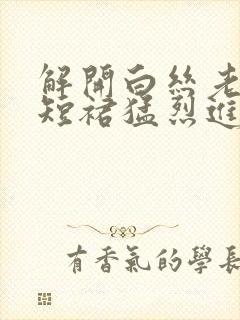 解開白絲老
短裙猛烈進
有香氣的學長